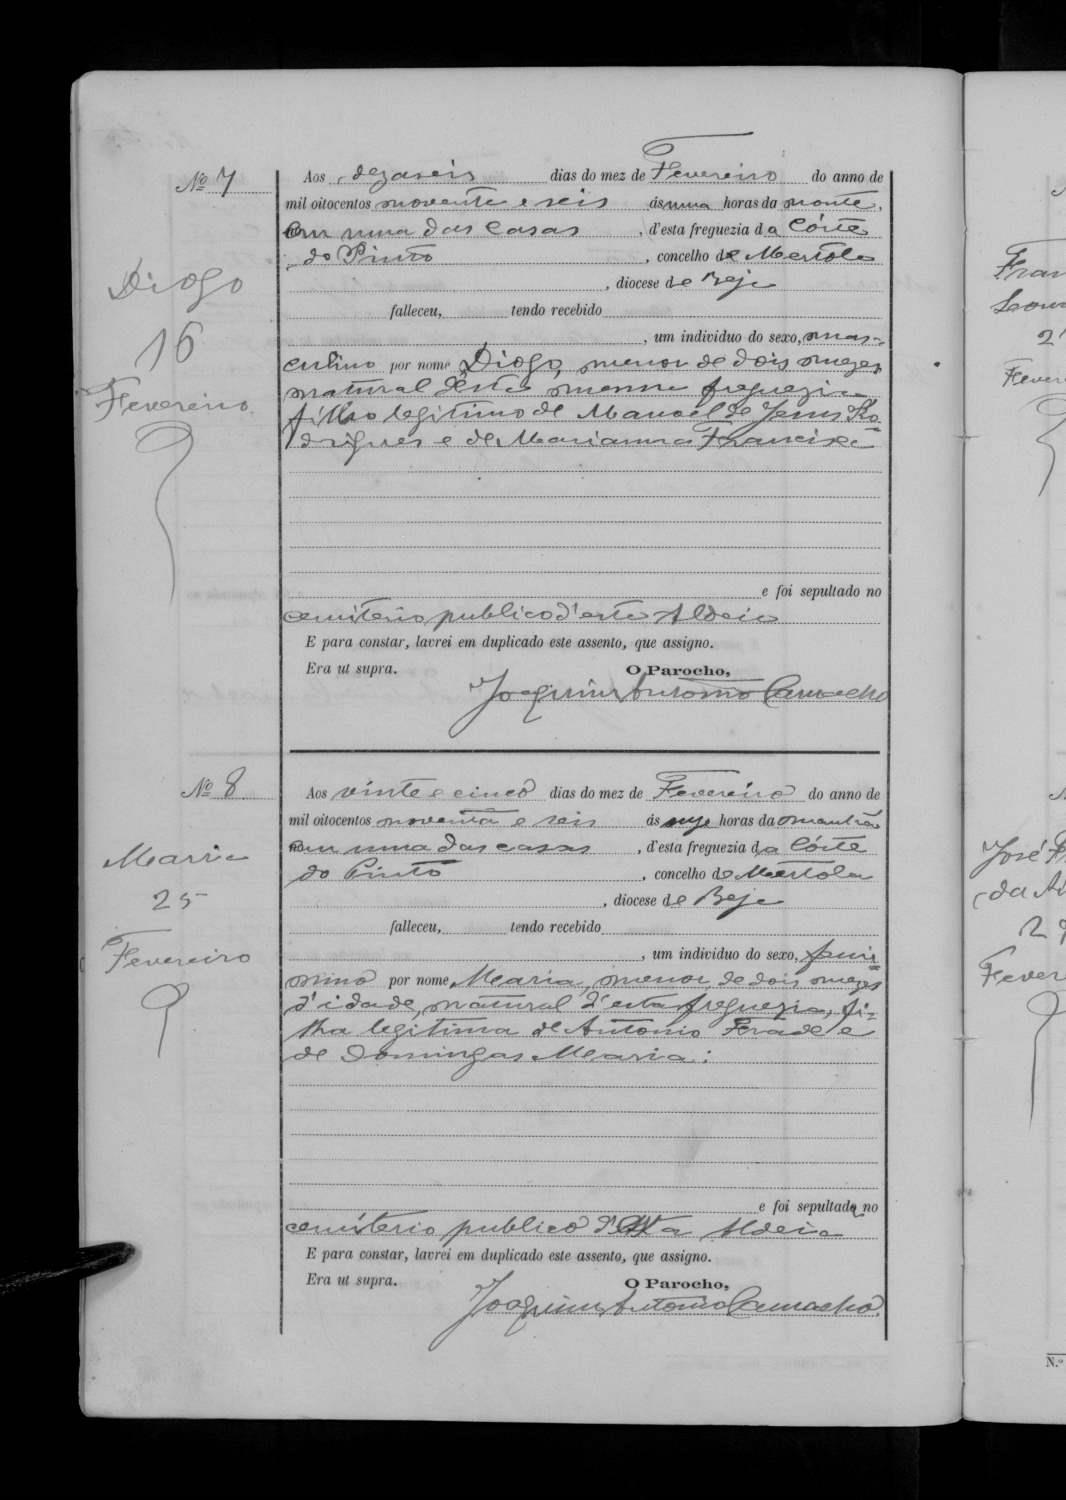 Nº 7
Diogo
16
Fevereiro
Aos dezaseis dias do mez de Fevereiro do anno de
mil oitocentos noventa e seis ás uma horas da noute,
em uma das casas, d'esta freguezia da Côrte
do Pinto, concelho de Mertola
, diocese de Beja
falleceu, tendo recebido
, um individuo do sexo, mas-
culino por nome, Diogo, menor de dois mezes
natural d'esta mesma freguezia
filho legitimo de Manoel de Jesus Ro-
drigues e de Marianna Francisca
e foi sepultado no
cemiterio publico d'esta Aldeia
E para constar, lavrei em duplicado este assento, que assigno.
Era ut supra. O Parocho,
Joaquim Antonio Camacho
Nº 8
Maria
25
Fevereiro
Aos vinte e cinco dias do mez de Fevereiro do anno de
mil oitocentos noventa e seis ás horas da manhã
em uma das casas, d'esta freguezia da Côrte
do Pinto, concelho de Mertola
, diocese de Beja
falleceu, tendo recebido
, um individuo do sexo, femi-
nino por nome, Maria, menor de dois mezes
d'idade, natural d'esta freguezia, fi-
lha legitima de Antonio e
de Domingas Maria:
e foi sepultada no
cemiterio publico d'esta Aldeia
E para constar, lavrei em duplicado este assento, que assigno.
Era ut supra. O Parocho,
Joaquim Antonio Camacho
Fran
2
Fever
José
da
2
Fever
N.º